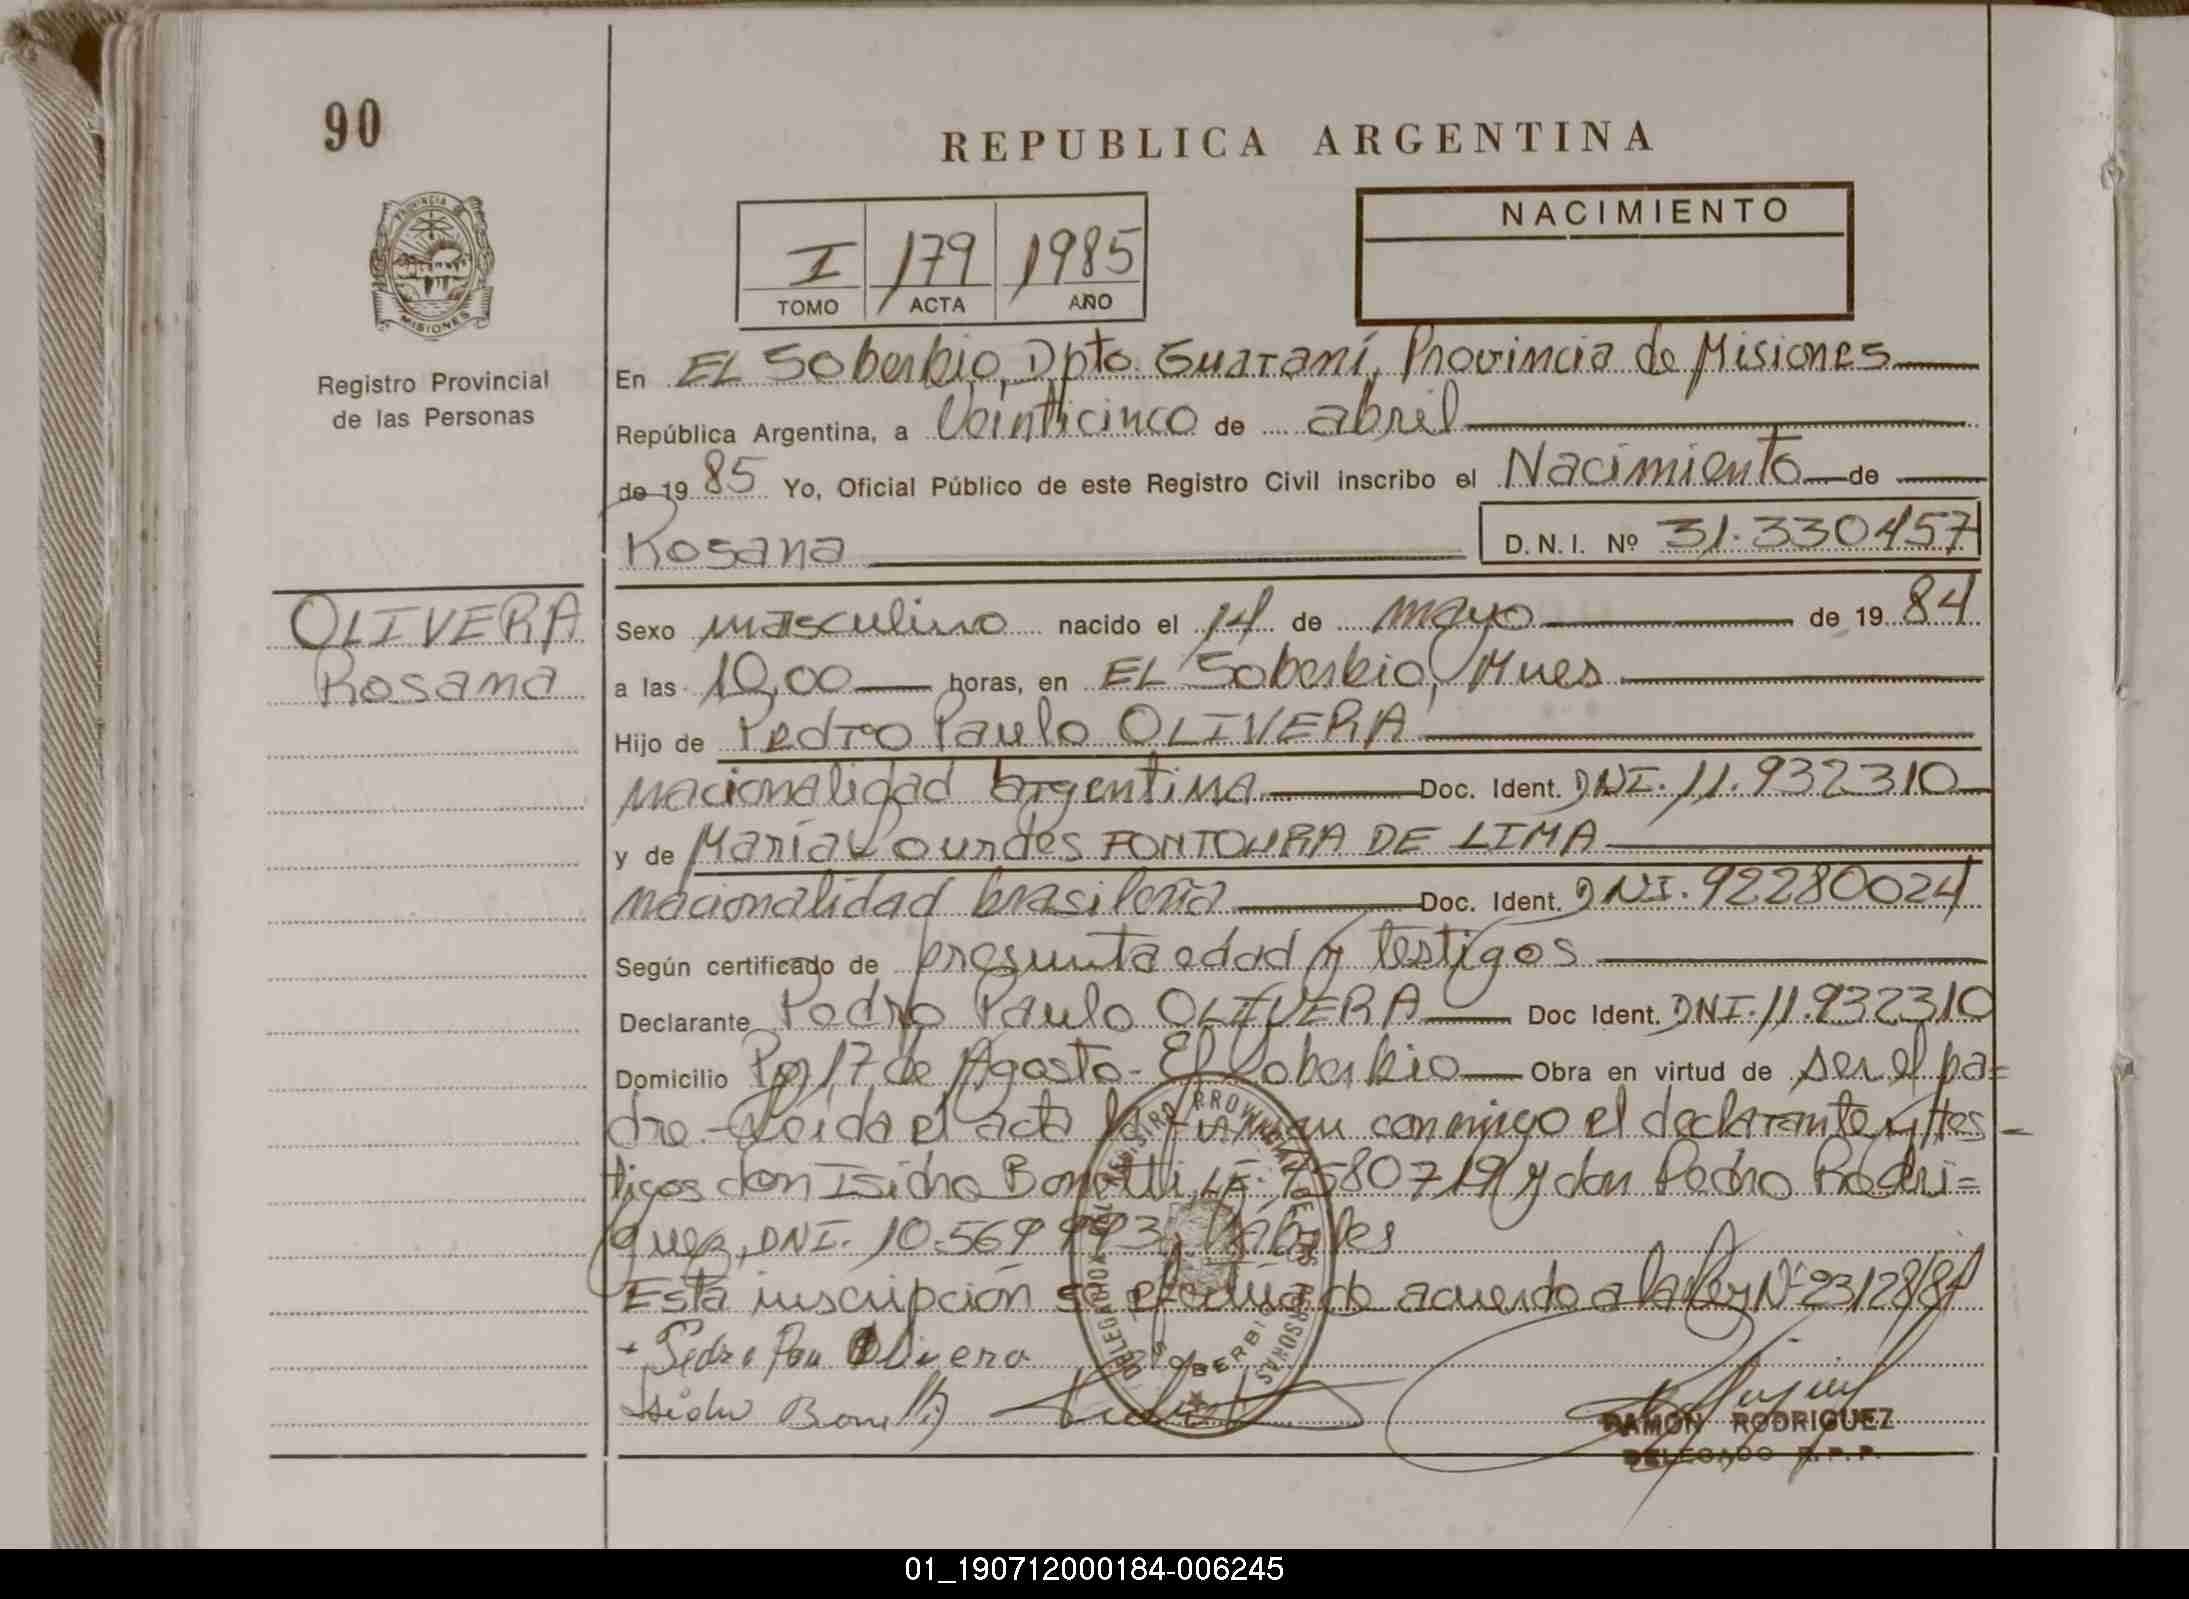 90
REPUBLICA ARGENTINA
PROVINCIA DE
MISIONES
Registro Provincial
de las Personas
I 179 1985
TOMO ACTA AÑO
NACIMIENTO
En EL Soberbio, Dpto. Guaraní, Provincia de Misiones
República Argentina, a Veinticinco de abril
de 19 85 Yo, Oficial Público de este Registro Civil inscribo el Nacimiento de
Rosana D.N.I. Nº 31.330457
OLIVERA
Rosana
Sexo masculino nacido el 14 de mayo de 19 84
a las 10,00 horas, en EL Soberbio, Mnes
Hijo de Pedro Paulo OLIVERA
nacionalidad argentina Doc. Ident. DNI. 11.932310
y de María Lourdes FONTOURA DE LIMA
nacionalidad brasileña Doc. Ident. DNI. 92280024
Según certificado de presunta edad y testigos
Declarante Pedro Paulo OLIVERA Doc Ident. DNI. 11.932310
Domicilio 17 de Agosto - El Soberbio Obra en virtud de ser el pa=
dre.- Leida el acta la firman conmigo el declarante y tes-
tigos don Isidro LE. 7580719 y don Pedro Rodri=
guez, DNI. 10.569 993, hábiles
Esta inscripción se efectua de acuerdo a la Ley Nº 23128/84
Pedro Pau Olivera
Isidro
DELEGACION REGISTRO PROVINCIAL DE LAS PERSONAS
SOBERBIO
RAMON RODRIGUEZ
DELEGADO R.P.P.
01_190712000184-006245